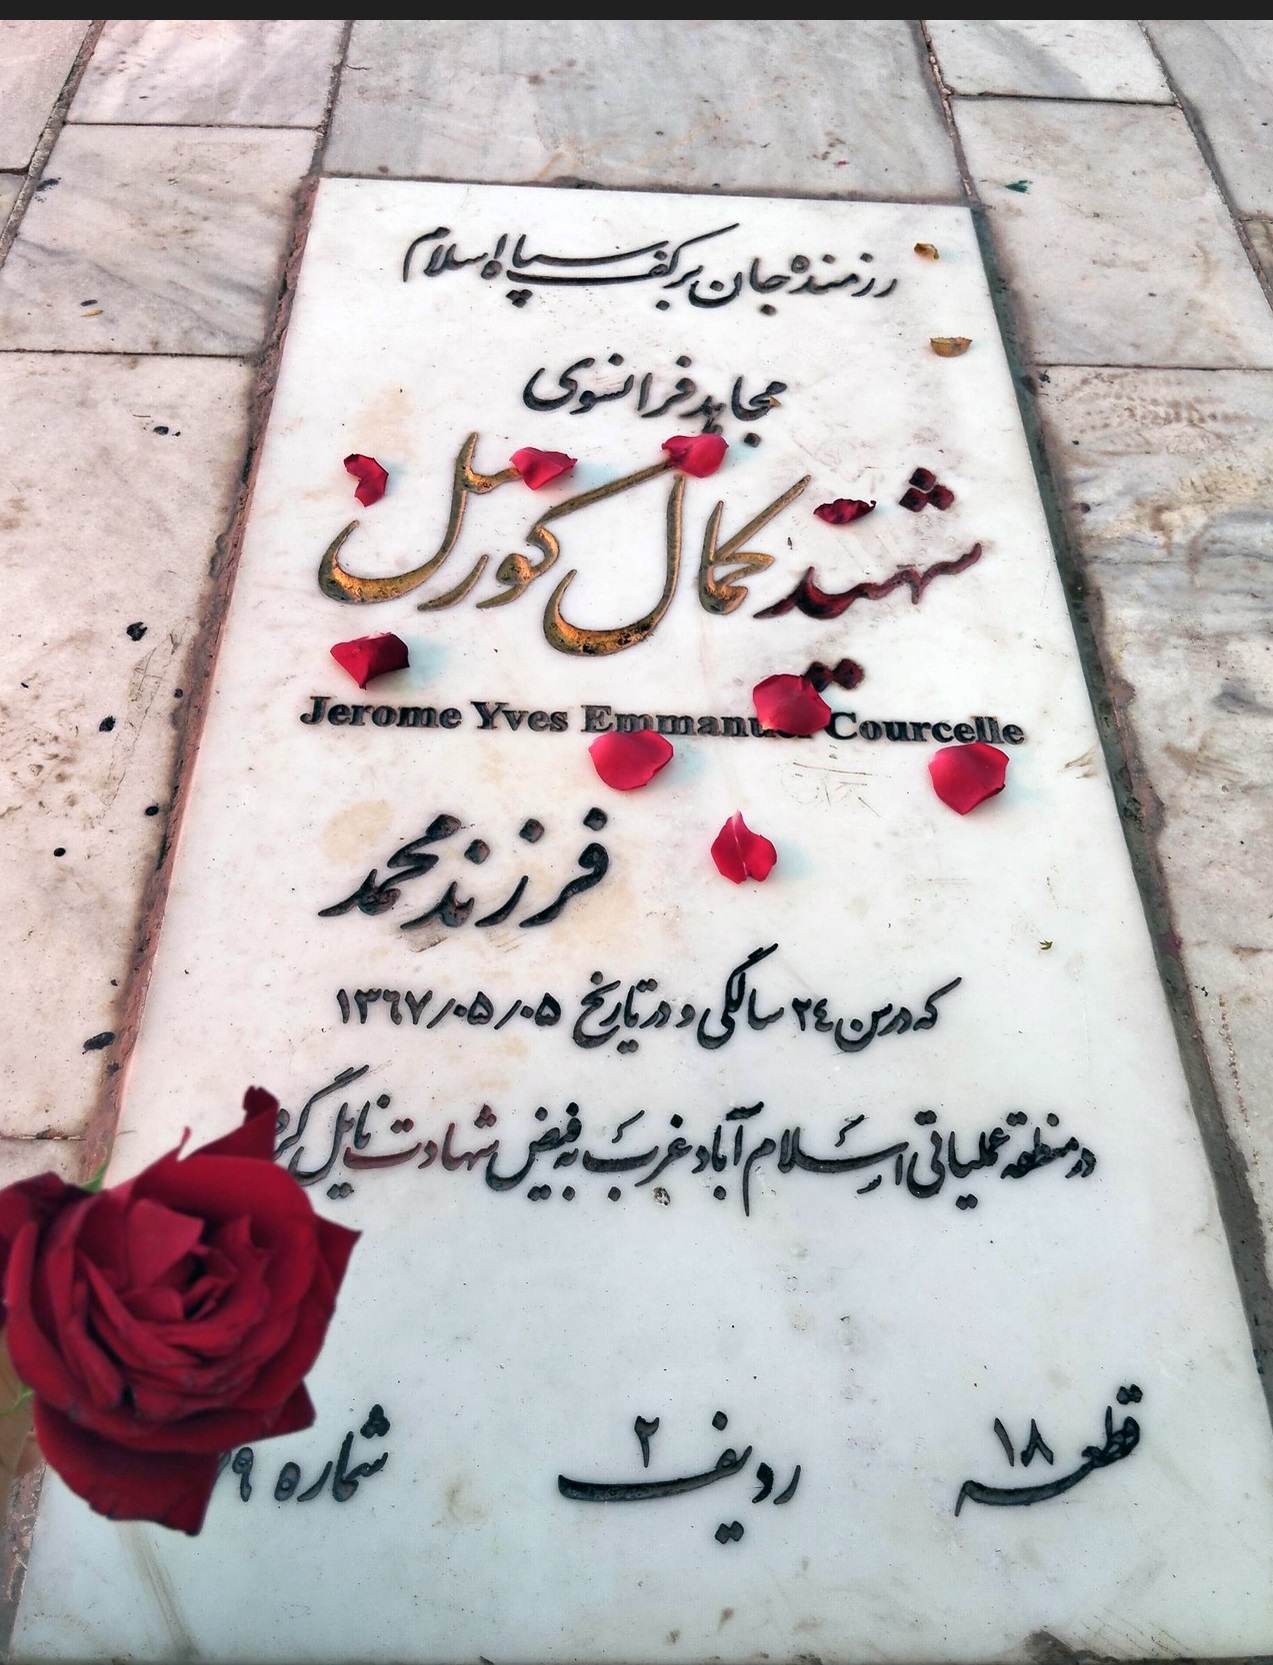 رزمنده جان برکف سپاه اسلام
مجاهد فرانسوی
شهید کمال کورسل
Jerome Yves Emmanuel Courcelle
فرزند محمد
که در سن ٢٤ سالگی و در تاریخ ١٣٦٧/٠۵/٠۵
در منطقه عملیاتی اسلام آباد غرب به فیض شهادت نایل
قطعه ١٨ ردیف ٢ شماره